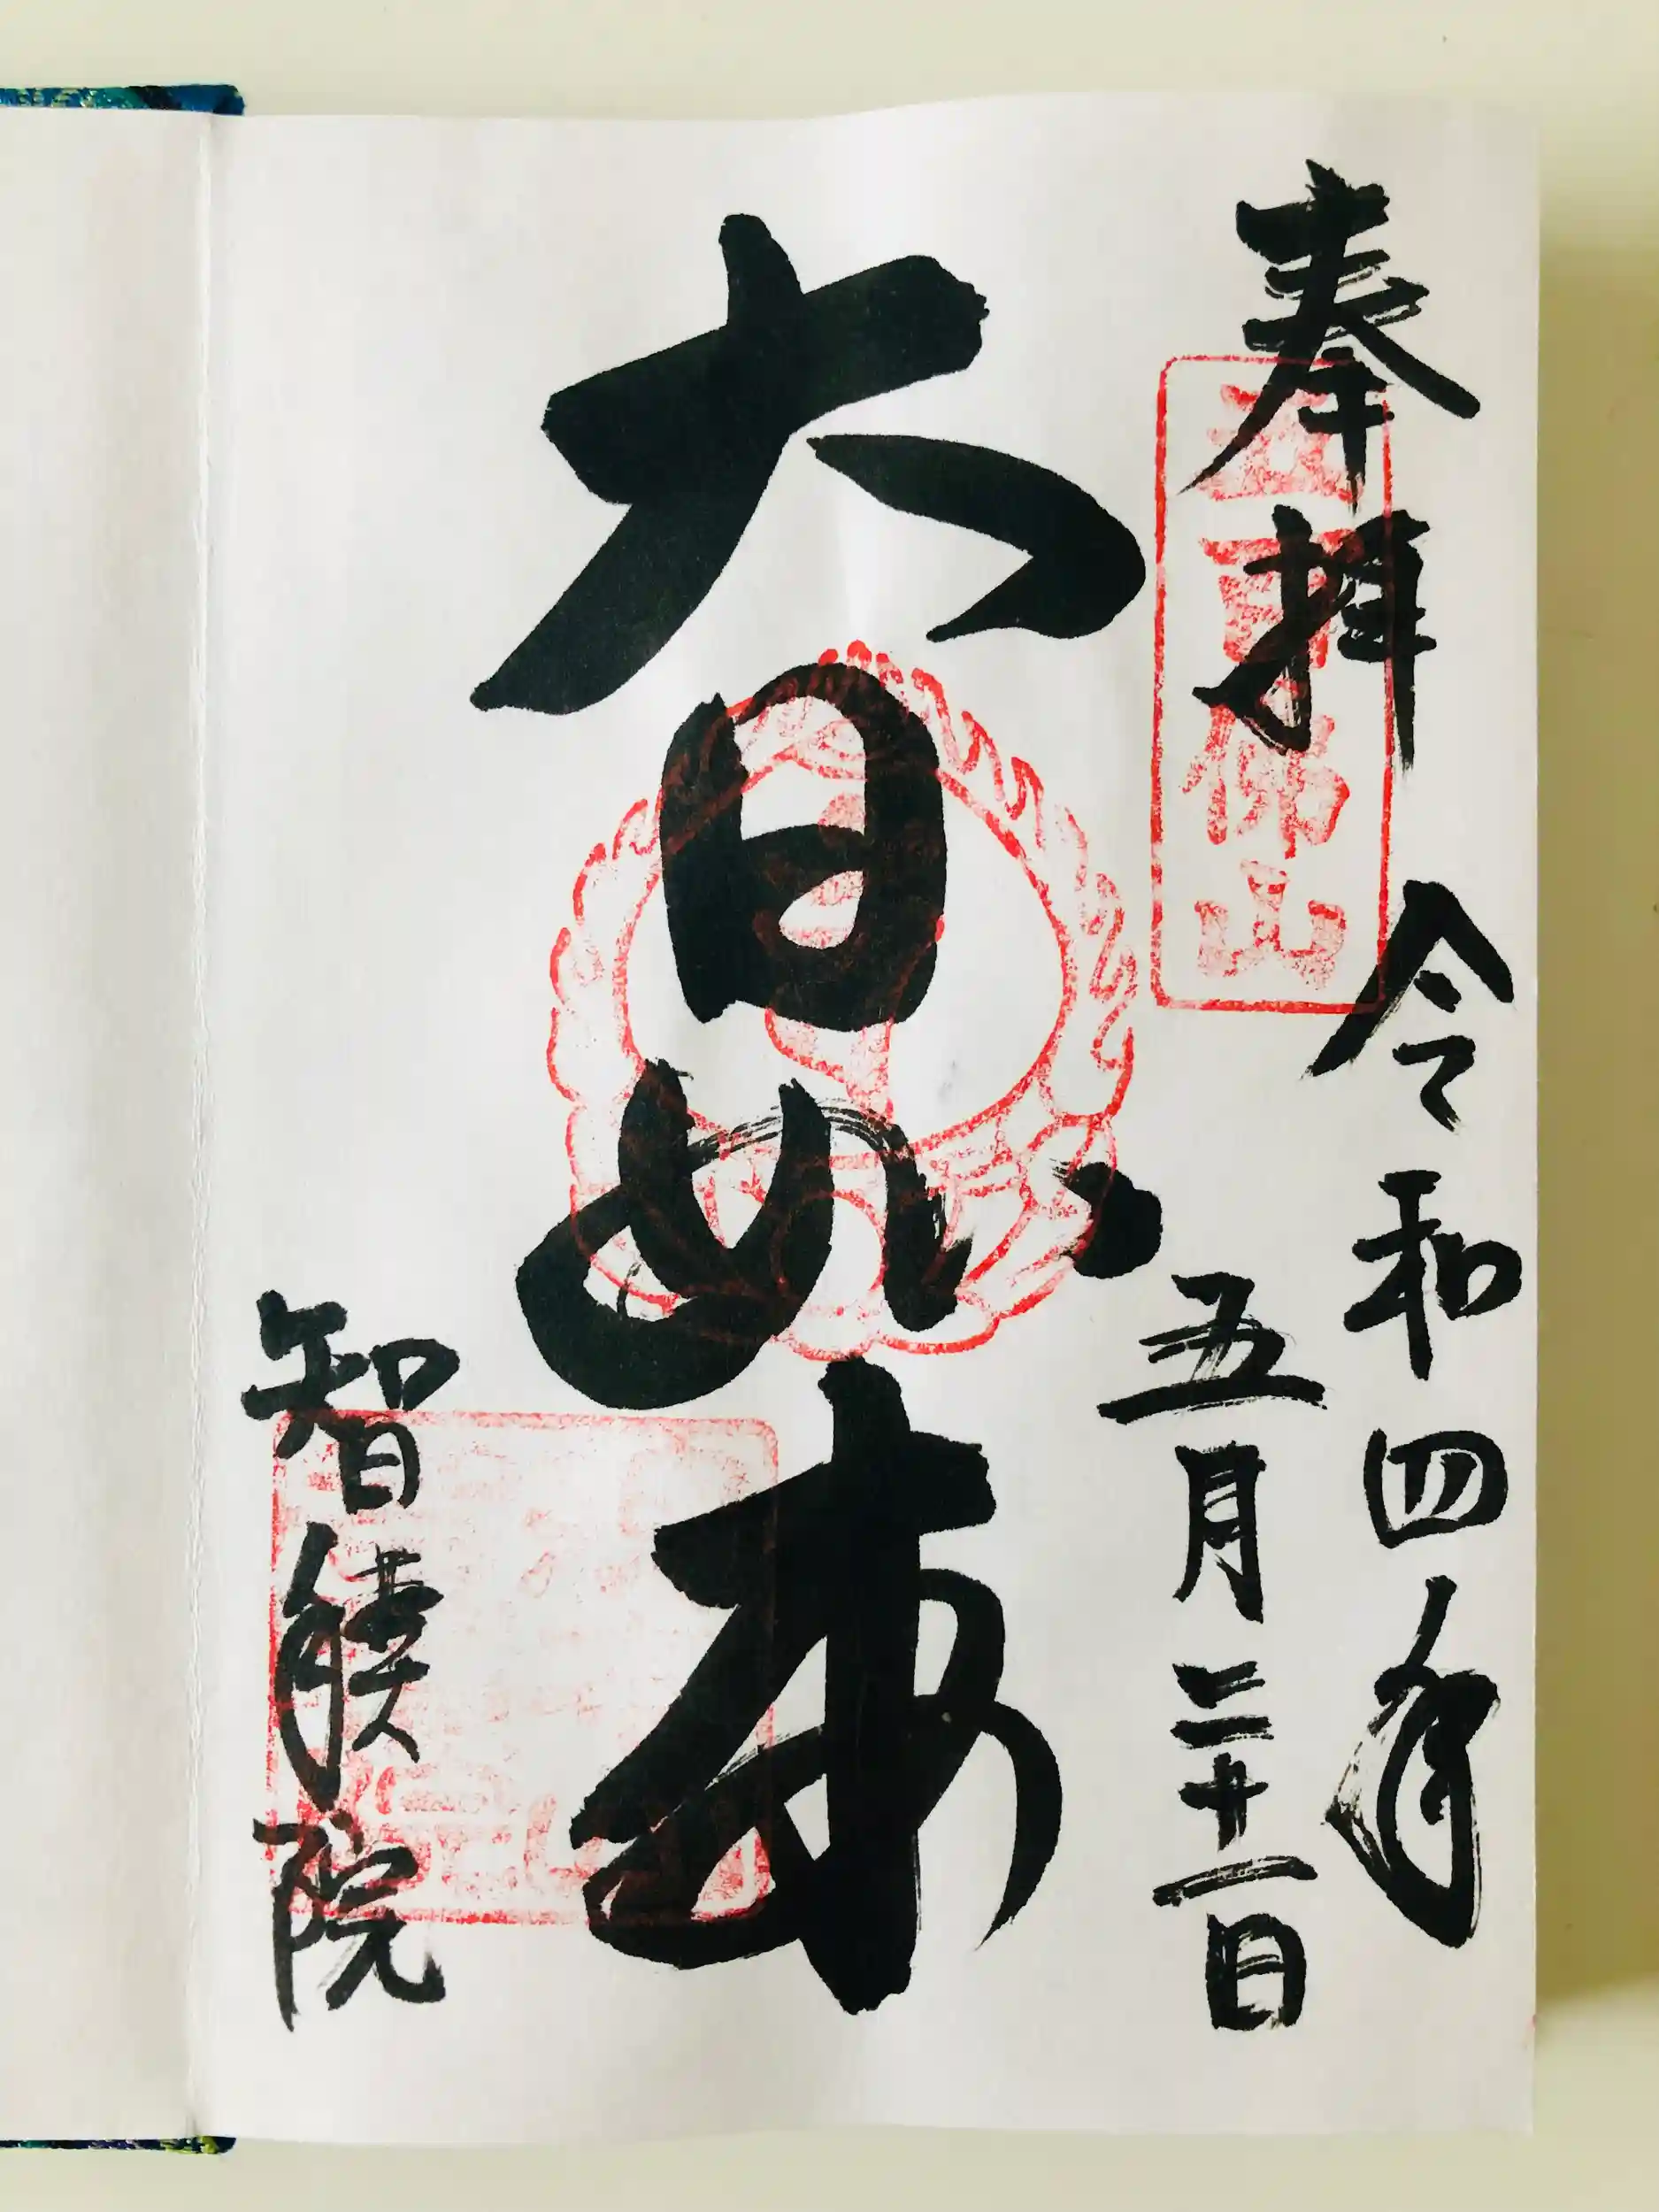 奉拝
五百佛山
令和四年
五月二十一日
大日如来
智積院